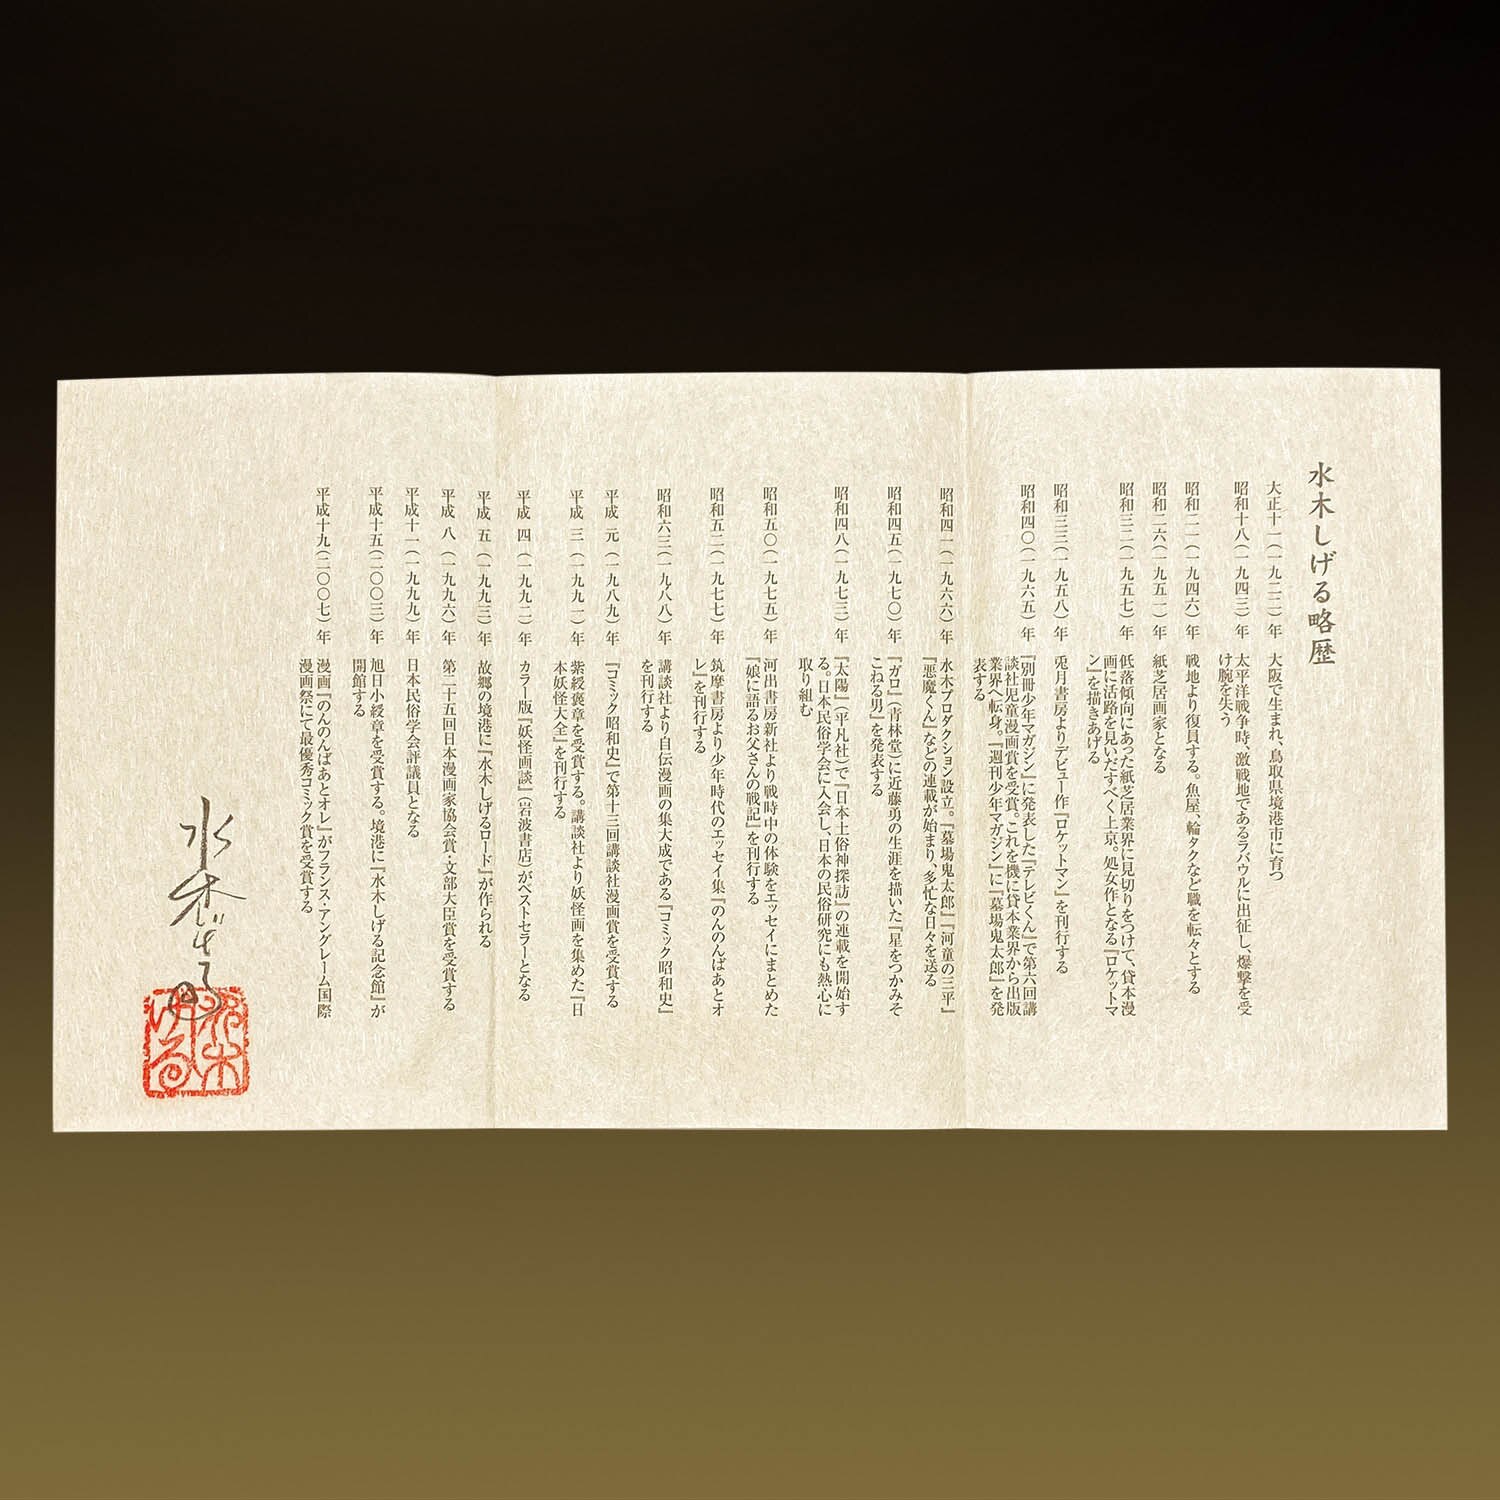 水木しげる略歴
大正十一（一九二二）年　大阪で生まれ、鳥取県境港市に育つ
昭和十八（一九四三）年　太平洋戦争時、激戦地であるラバウルに出征し、爆撃を受
け腕を失う
昭和二一（一九四六）年　戦地より復員する。魚屋、輪タクなど職を転々とする
昭和二六（一九五一）年　紙芝居画家となる
昭和三二（一九五七）年　低落傾向にあった紙芝居業界に見切りをつけて、貸本漫
画に活路を見いだすべく上京。処女作となる『ロケットマ
ン』を描きあげる
昭和三三（一九五八）年　兎月書房よりデビュー作『ロケットマン』を刊行する
昭和四〇（一九六五）年　『別冊少年マガジン』に発表した『テレビくん』で第六回講
談社児童漫画賞を受賞。これを機に貸本業界から出版
業界へ転身。『週刊少年マガジン』に『墓場鬼太郎』を発
表する
昭和四一（一九六六）年　水木プロダクション設立。『墓場鬼太郎』『河童の三平』
『悪魔くん』などの連載が始まり、多忙な日々を送る
昭和四五（一九七〇）年　『ガロ』（青林堂）に近藤勇の生涯を描いた『星をつかみそ
こねる男』を発表する
昭和四八（一九七三）年　『太陽』（平凡社）で『日本土俗神探訪』の連載を開始す
る。日本民俗学会に入会し、日本の民俗研究にも熱心に
取り組む
昭和五〇（一九七五）年　河出書房新社より戦時中の体験をエッセイにまとめた
『娘に語るお父さんの戦記』を刊行する
昭和五二（一九七七）年　筑摩書房より少年時代のエッセイ集『のんのんばあとオ
レ』を刊行する
昭和六三（一九八八）年　講談社より自伝漫画の集大成である『コミック昭和史』
を刊行する
平成　元（一九八九）年　『コミック昭和史』で第十三回講談社漫画賞を受賞する
平成　三（一九九一）年　紫綬褒章を受賞する。講談社より妖怪画を集めた『日
本妖怪大全』を刊行する
平成　四（一九九二）年　カラー版『妖怪画談』（岩波書店）がベストセラーとなる
平成　五（一九九三）年　故郷の境港に『水木しげるロード』が作られる
平成　八（一九九六）年　第二十五回日本漫画家協会賞・文部大臣賞を受賞する
平成十一（一九九九）年　日本民俗学会評議員となる
平成十五（二〇〇三）年　旭日小綬章を受賞する。境港に『水木しげる記念館』が
開館する
平成十九（二〇〇七）年　漫画『のんのんばあとオレ』がフランス・アングレーム国際
漫画祭にて最優秀コミック賞を受賞する
水木しげる
水木
しげる